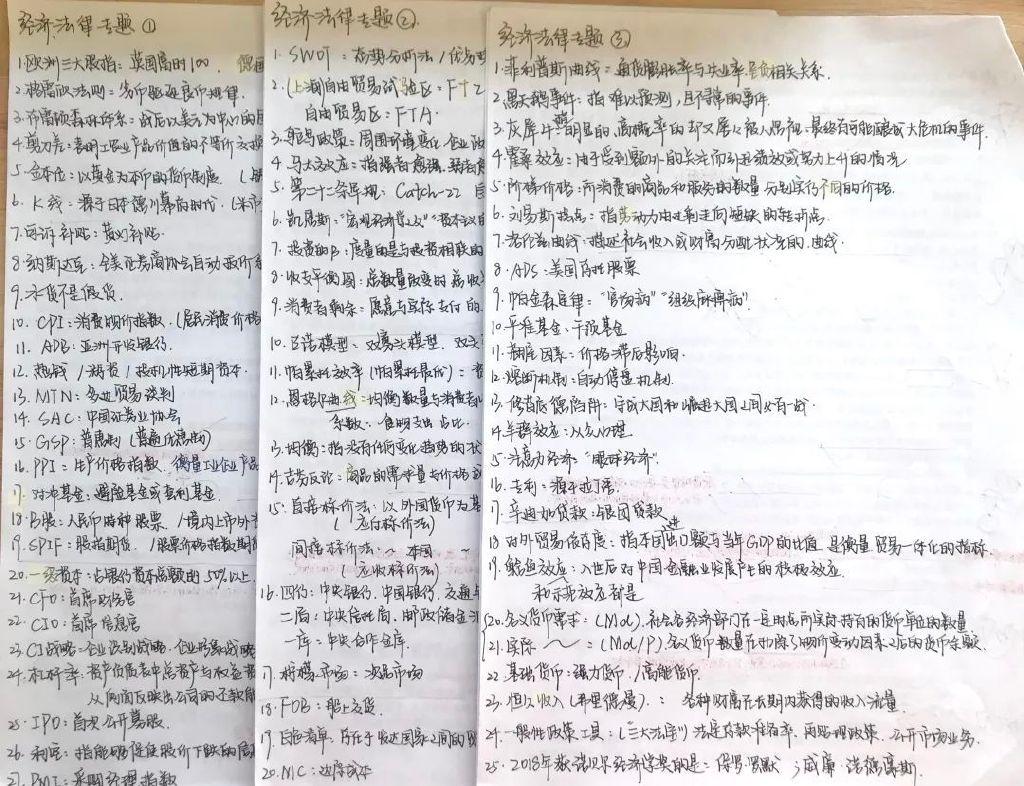 经济法律专题①
1.欧洲三大股指：英国富时100.
2.格雷欣法则=劣币驱逐良币规律.
3.布雷顿森林体系：战后以美元为中心的
4.剪刀差：表明工农业产品价值的不等价交换
5.金本位：以黄金为本币的货币制度.
6.K线：源于日本德川幕府时代.
7.可诉补贴：黄灯补贴.
8.纳斯达克：全美证券商协会自动报价系
9.水货不是假货.
10.CPI：消费物价指数.(居民消费价格
11.ADB：亚洲开发银行.
12.热钱/游资/投机性短期资本.
13.MTN：多边贸易谈判
14.SAC：中国证券业协会
15.GSP：普惠制(普遍优惠制)
16.PPI：生产价格指数.衡量工业企业产品
17.对冲基金：避险基金或套利基金.
18.B股：人民币特种股票/境内上市外
19.SPIF：股指期货./股票价格指数期
20.一级资本：占银行资本总额的50%以上.
21.CFO：首席财务官
22.CIO：首席信息官
23.CI战略=企业识别战略.企业形象战略
24.杠杆率：资产负债表中总资产与权益资
从侧面反映出公司的还款能
25.IPO：首次公开募股.
26.利空：指能够促使股价下跌的
27.PMI：采购经理指数
经济法律专题②.
1.SWOT：态势分析法/优劣
2.(上海)自由贸易试验区：FTZ
自由贸易区：FTA.
3.
4.马太效应：指强者愈强、弱者
5.第二十二条军规：Catch-22
6.凯恩斯："宏观经济学之父"
7.投资的β：度量的是与投资相联的
8.收支平衡图：总数量改变的总收
9.消费者剩余：愿意与实际支付的
10.古诺模型=双寡头模型.双头
11.帕累托效率(帕累托最优)：
12.恩格尔曲线：均衡数量与消费者
系数：食物支出占比.
13.均衡：指没有任何变化趋势的状
14.吉芬反论：商品的需求量与价格
15.直接标价法：以外国货币为基
(应付标价法)
间接标价法：～本国～
(应收标价法)
16.四行：中央银行.中国银行.交通
二局：中央信托局、邮政储金
一库：中央合作金库.
17.柠檬市场：次品市场
18.FOB：船上交货.
19.白色清单：存在于发达国家之间的
20.MC：边际成本
经济法律专题③.
1.菲利普斯曲线=通货膨胀率与失业率呈负相关关系.
2.黑天鹅事件：指难以预测,且不寻常的事件.
3.灰犀牛：明显的、高概率的却又屡屡被人忽视、最终有可能酿成大危机的事件.
4.霍桑效应：由于受到额外的关注而引起绩效或努力上升的情况
5.阶梯价格：而消费的商品和服务的数量分别实行不同的价格.
6.刘易斯拐点：指劳动力由过剩走向短缺的转折点.
7.洛伦兹曲线：描述社会收入或财富分配状况的曲线.
8.ADS：美国存托股票
9.帕金森定律："官场病""组织麻痹病"
10.平准基金=干预基金
11.翘尾因素=价格滞后影响.
12.熔断机制：自动停盘机制.
13.修昔底德陷阱：守成大国和崛起大国之间必有一战.
14.羊群效应：从众心理
15.注意力经济："眼球经济".
16.专利：源于拉丁语.
17.辛迪加贷款：银团贷款
18.对外贸易依存度：指本国进出口额与当年GDP的比值.是衡量贸易一体化的指标.
19.鲶鱼效应：入世后对中国金融业发展产生的积极效应.
和示范效应都是
20.名义货币需求：(Md).社会各经济部门在一定时点所实际持有的货币单位的数量
21.实际～～=(Md/P).名义货币数量在扣除了物价变动因素之后的货币余额.
22.基础货币=强力货币./高能货币.
23.恒久收入(弗里德曼)：各种财富在长期内获得的收入流量.
24.一般性政策工具：(三大法宝)法定存款准备率.再贴现政策.公开市场业务.
25.2018年获诺贝尔经济学奖的是：保罗·罗默；威廉·诺德豪斯.